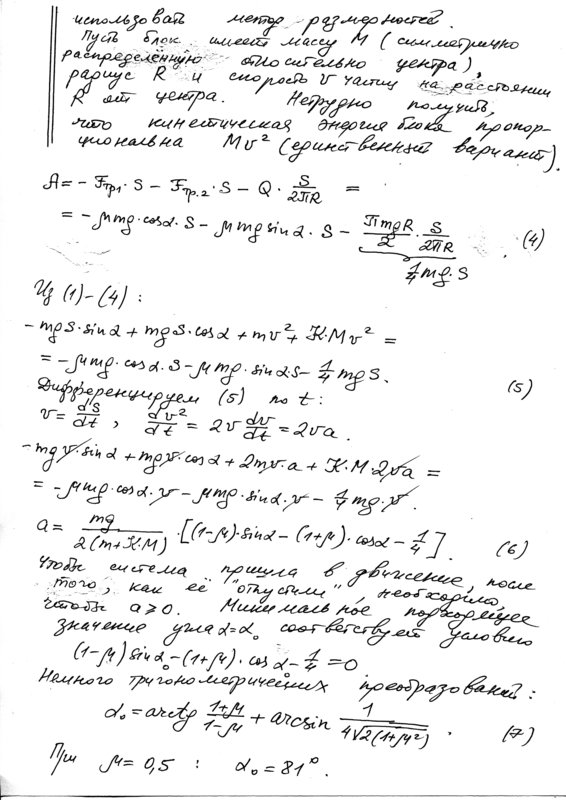 использовать метод размерностей.
Пусть блок имеет массу M (симметрично
распределённую относительно центра),
радиус R и скорость v частиц на расстоянии
R от центра. Нетрудно получить,
что кинетическая энергия блока пропор-
циональна Mv² (единственный вариант).
A = - Fтр₁ · S - Fтр.₂ · S - Q · S/2πR =
= - μmg·cosα·S - μmg sinα · S - πmgR/2 · S/2πR . (4)
1/4 mg·S
Из (1)-(4) :
- mgS·sinα + mgS·cosα + mv² + K·Mv² =
= - μmg·cosα·S - μmg·sinα·S - 1/4 mgS. (5)
Дифференцируем (5) по t:
v = dS/dt , dv²/dt = 2v dv/dt = 2va .
- mgv·sinα + mgv·cosα + 2mv·a + K·M·2va =
= - μmg·cosα·v - μmg·sinα·v - 1/4 mg·v .
a = mg/2(m+K·M) · [(1-μ)·sinα - (1+μ)·cosα - 1/4] . (6)
Чтобы система пришла в движение, после
того, как её "отпустили", необходимо,
чтобы a ≥ 0. Минимальное подходящее
значение угла α=α₀ соответствует условию
(1-μ) sinα₀ - (1+μ)·cosα - 1/4 = 0
Немного тригонометрических преобразований :
α₀ = arctg 1+μ/1-μ + arcsin 1/4√2(1+μ²) . (7)
При μ = 0,5 : α₀ = 81° .